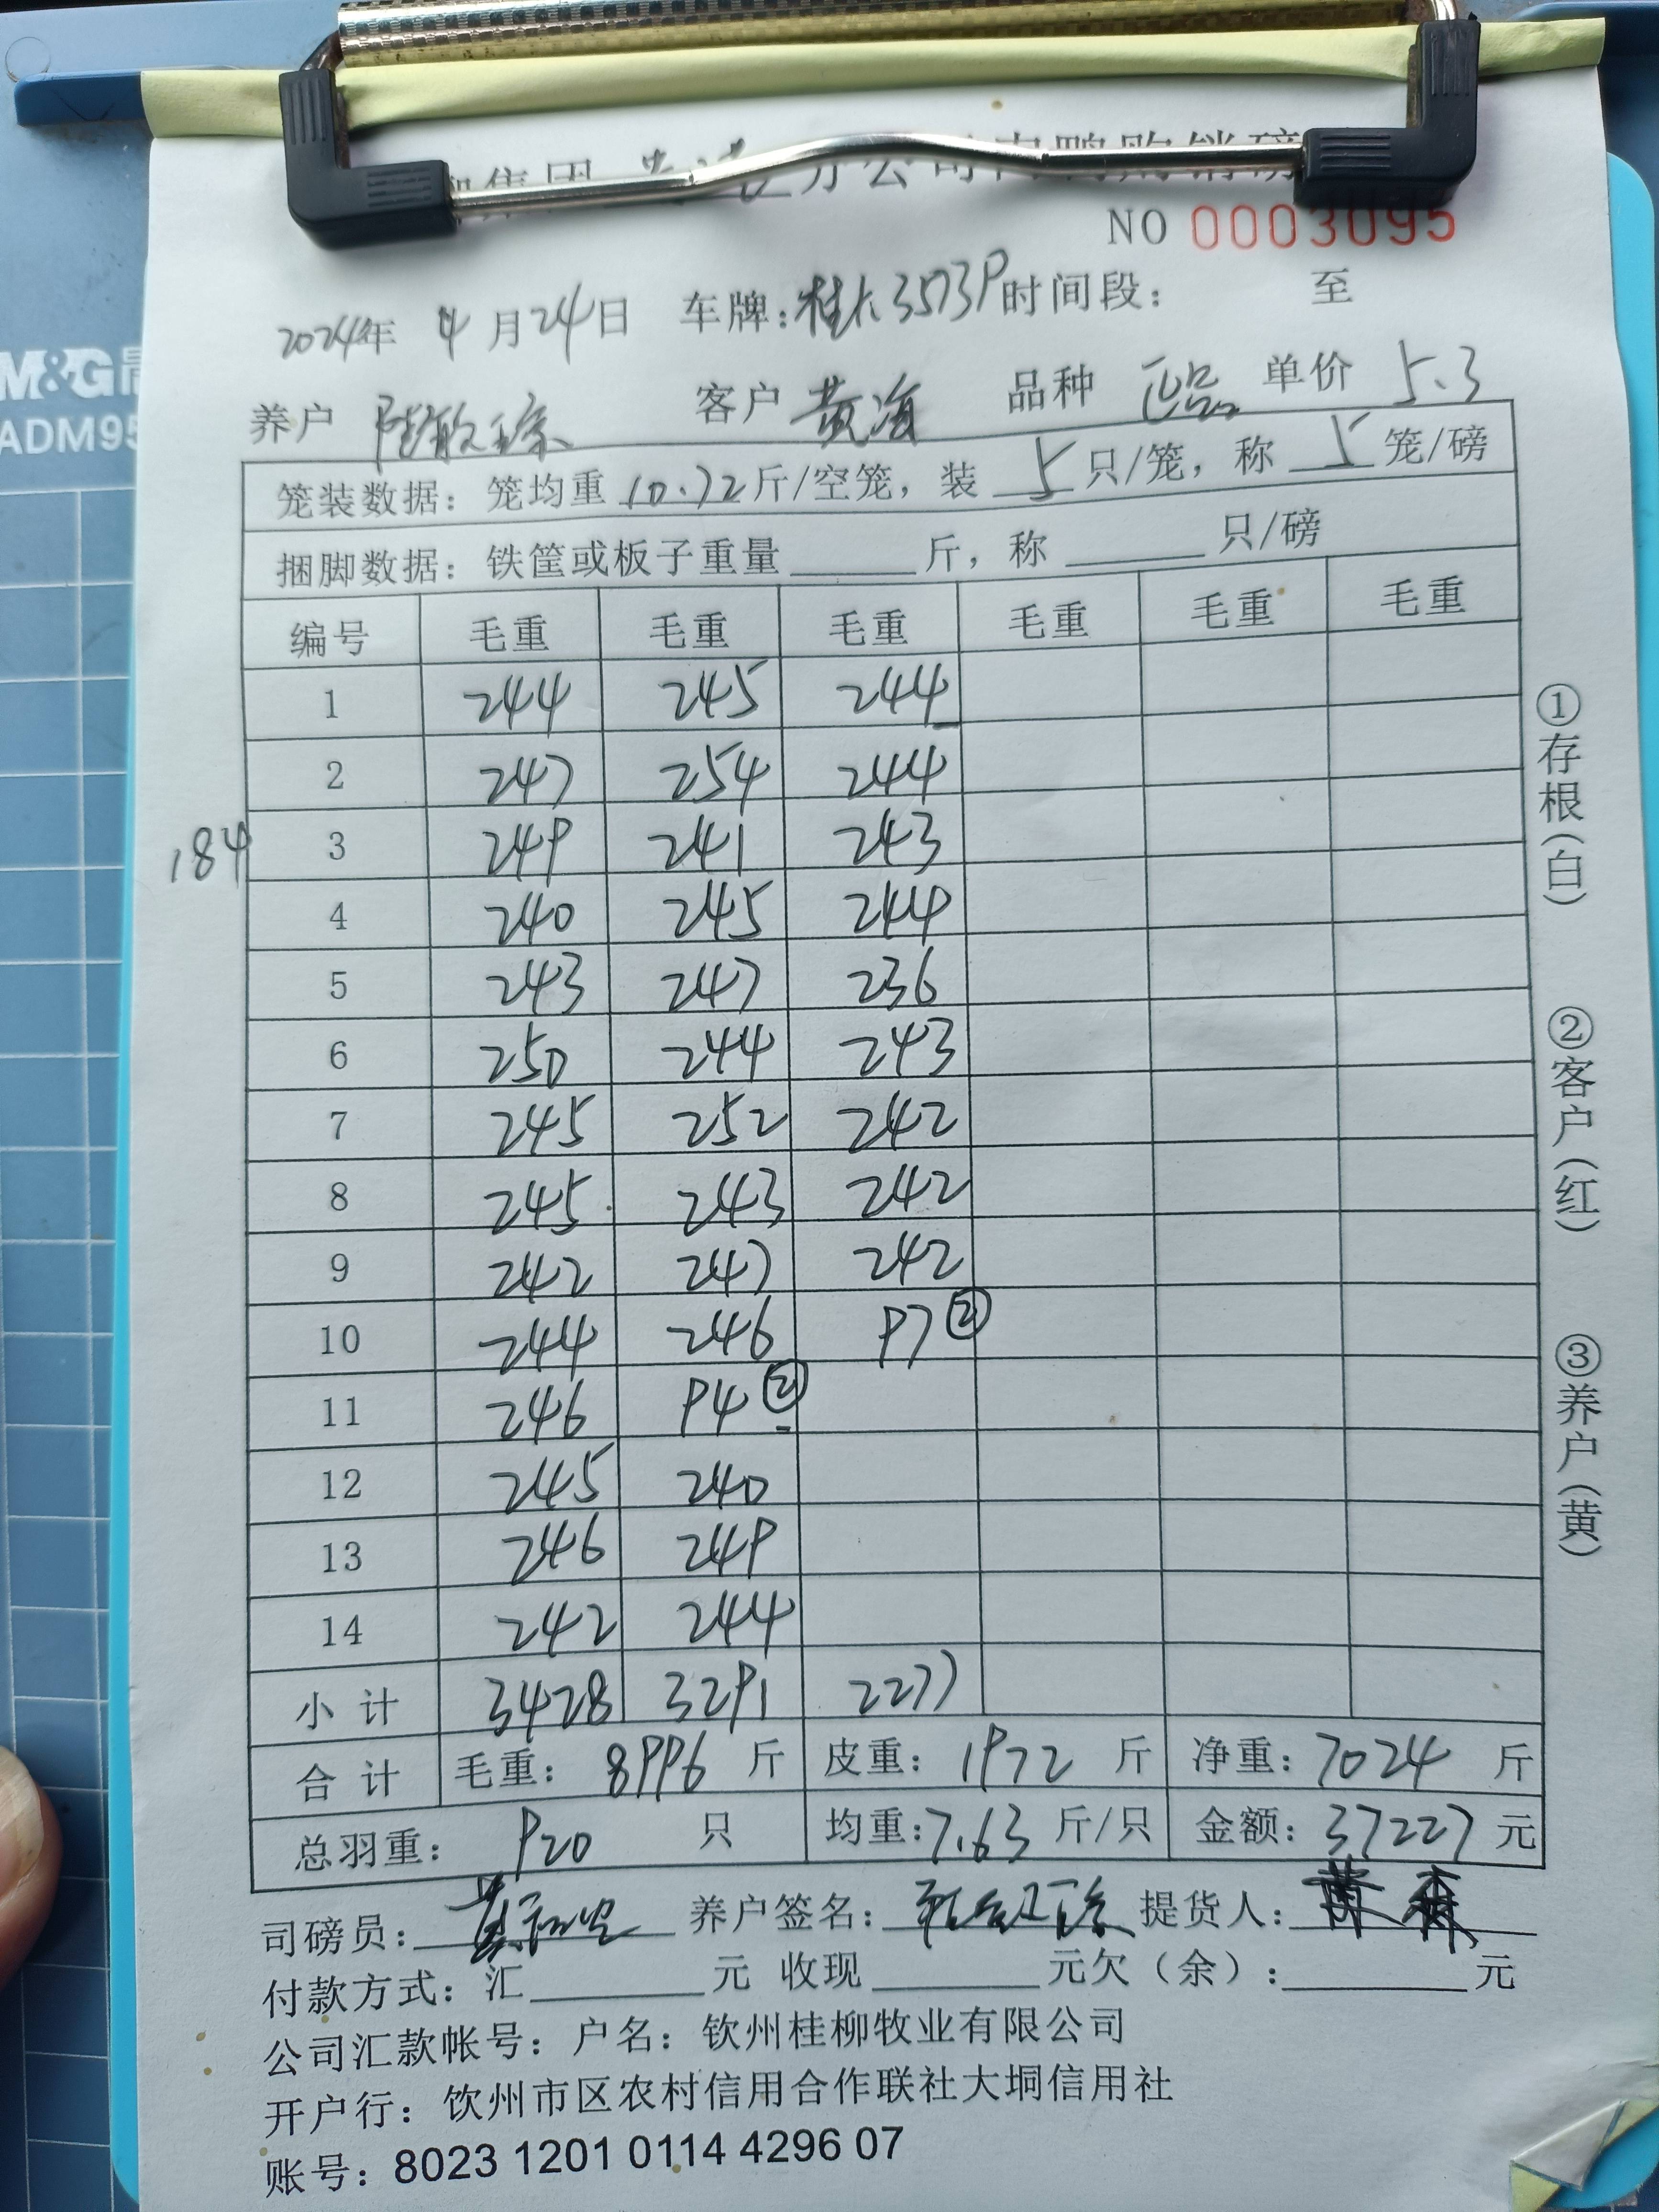 集团 分公司肉鸭购销磅
NO 0003095
2024年 4月24日 车牌:桂A3573P 时间段: 至
养户 客户 黄海 品种 正品 单价 5.3
笼装数据: 笼均重 10.72 斤/空笼, 装 5 只/笼, 称 5 笼/磅
捆脚数据: 铁筐或板子重量 斤, 称 只/磅
编号 毛重 毛重 毛重 毛重 毛重 毛重
1 244 245 244
2 247 254 244
184 3 249 241 243
4 240 245 244
5 243 247 236
6 250 244 243
7 245 252 242
8 245 243 242
9 242 247 242
10 244 246 97②
11 246 94②
12 245 240
13 246 249
14 242 244
小计 3428 3291 2277
合计 毛重: 8996 斤 皮重: 1972 斤 净重: 7024 斤
总羽重: 920 只 均重: 7.63 斤/只 金额: 37227 元
司磅员: 养户签名: 提货人:
付款方式: 汇 元 收现 元欠(余): 元
公司汇款帐号: 户名: 钦州桂柳牧业有限公司
开户行: 钦州市区农村信用合作联社大垌信用社
账号: 8023 1201 0114 4296 07
①存根(白)
②客户(红)
③养户(黄)
M&G
ADM95